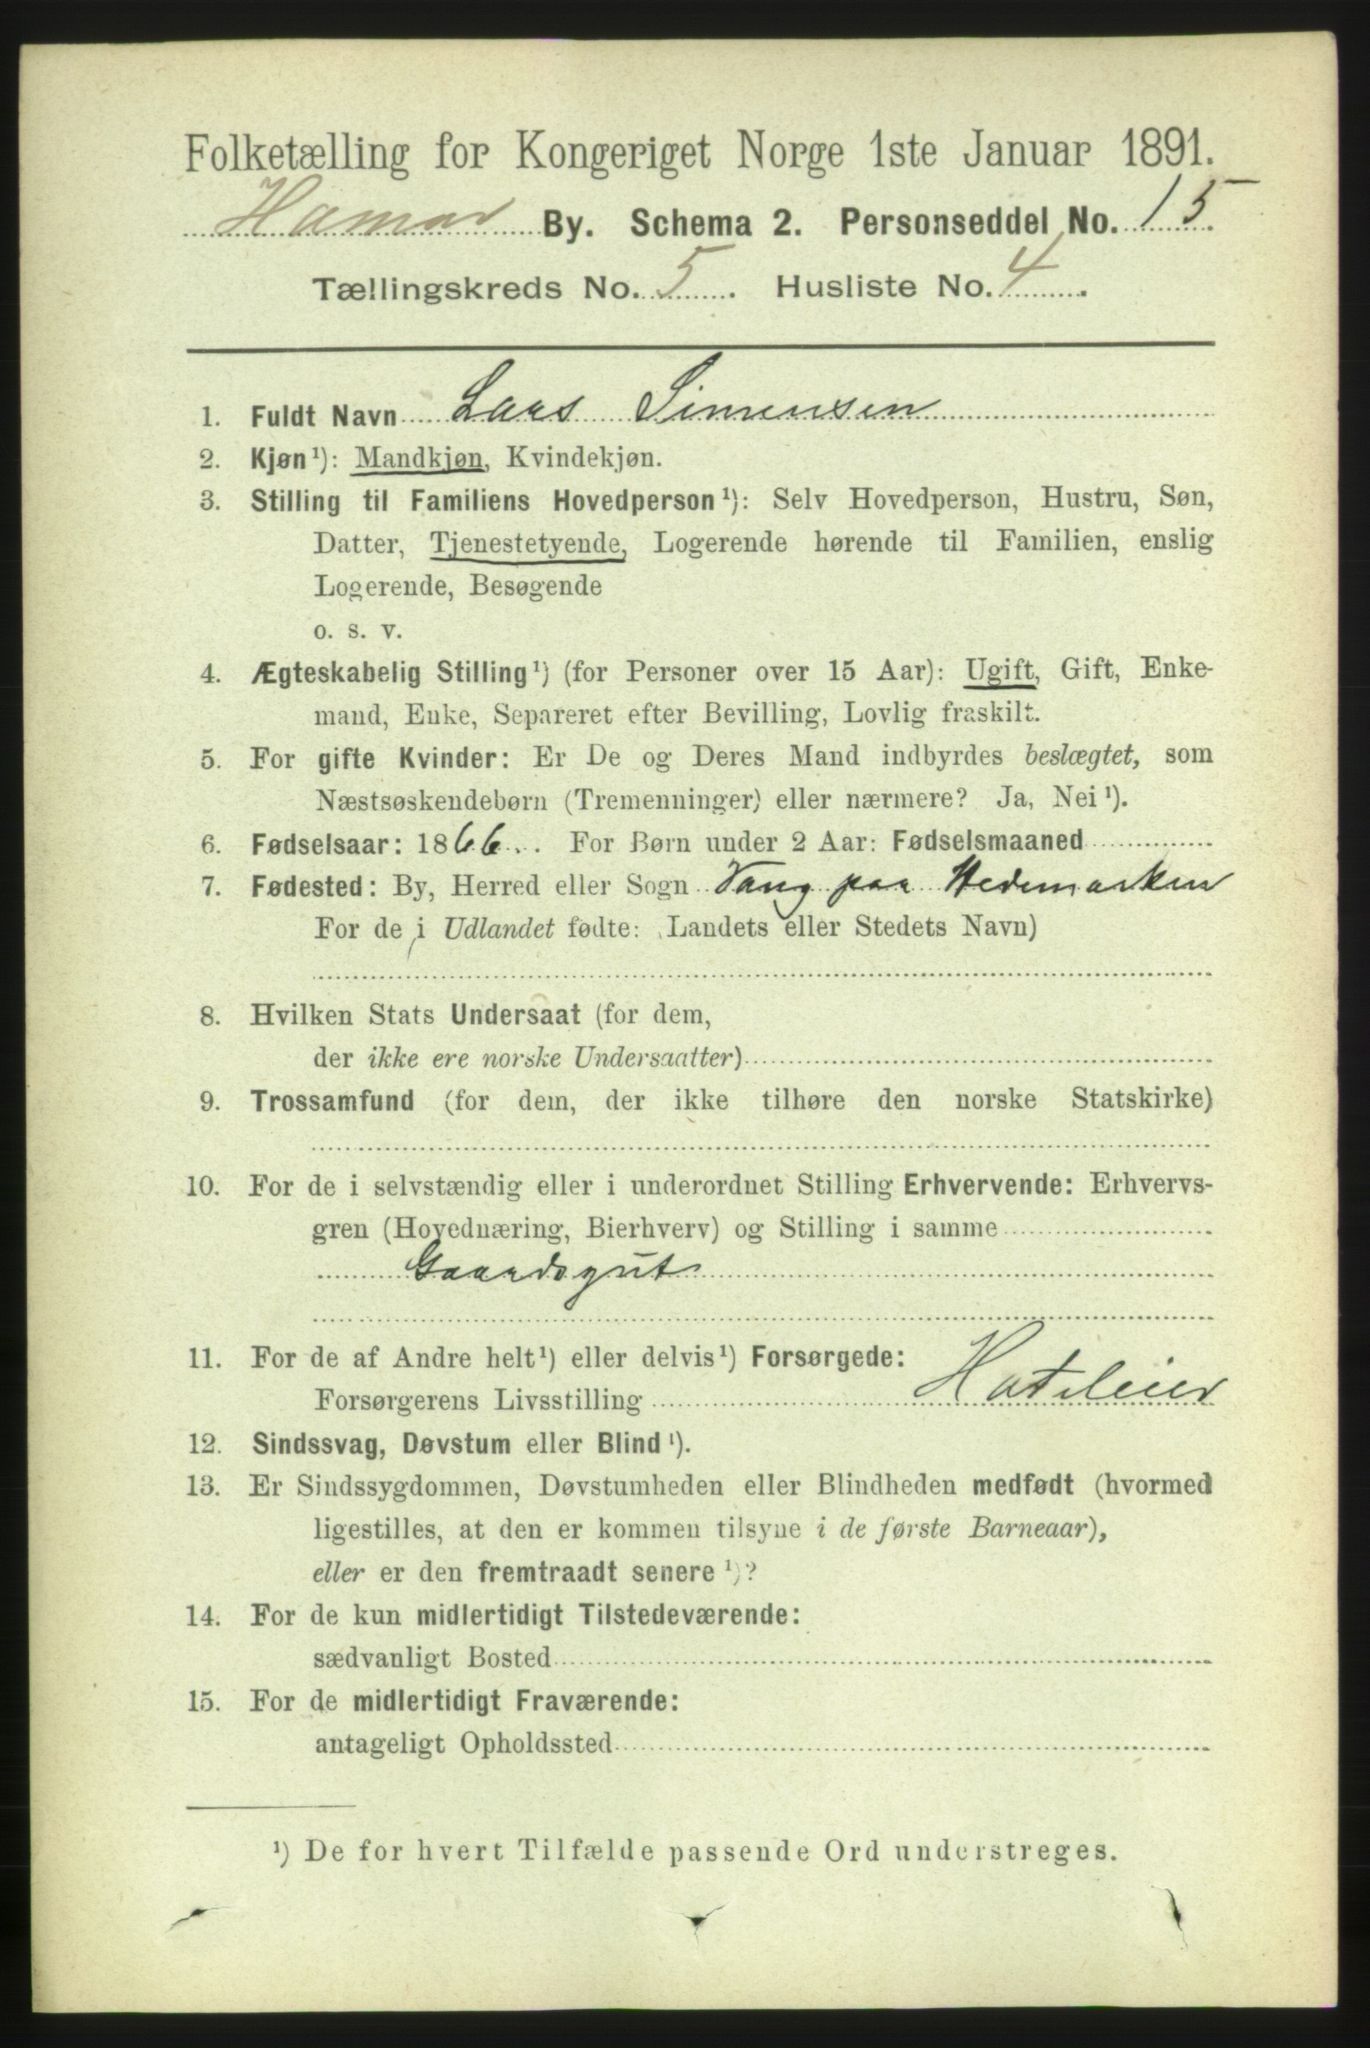 Folketælling for Kongeriget Norge 1ste Januar 1891.
Hamar By. Schema 2. Personseddel No. 15.
Tællingskreds No. 5. Husliste No. 4.
1. Fuldt Navn Lars Simensen
2. Kjøn¹): Mandkjøn, Kvindekjøn.
3. Stilling til Familiens Hovedperson¹): Selv Hovedperson, Hustru, Søn,
Datter, Tjenestetyende, Logerende hørende til Familien, enslig
Logerende, Besøgende
o. s. v.
4. Ægteskabelig Stilling¹) (for Personer over 15 Aar): Ugift, Gift, Enke-
mand, Enke, Separeret efter Bevilling, Lovlig fraskilt.
5. For gifte Kvinder: Er De og Deres Mand indbyrdes beslægtet, som
Næstsøskendebørn (Tremenninger) eller nærmere? Ja, Nei¹).
6. Fødselsaar: 1866. For Børn under 2 Aar: Fødselsmaaned
7. Fødested: By, Herred eller Sogn Vang paa Hedemarken
For de i Udlandet fødte: Landets eller Stedets Navn)
8. Hvilken Stats Undersaat (for dem,
der ikke ere norske Undersaatter)
9. Trossamfund (for dem, der ikke tilhøre den norske Statskirke)
10. For de i selvstændig eller i underordnet Stilling Erhvervende: Erhvervs-
gren (Hovednæring, Bierhverv) og Stilling i samme
Gaardsgut
11. For de af Andre helt¹) eller delvis¹) Forsørgede:
Forsørgerens Livsstilling Hoteleier
12. Sindssvag, Døvstum eller Blind¹).
13. Er Sindssygdommen, Døvstumheden eller Blindheden medfødt (hvormed
ligestilles, at den er kommen tilsyne i de første Barneaar),
eller er den fremtraadt senere¹)?
14. For de kun midlertidigt Tilstedeværende:
sædvanligt Bosted
15. For de midlertidigt Fraværende:
antageligt Opholdssted
¹) De for hvert Tilfælde passende Ord understreges.